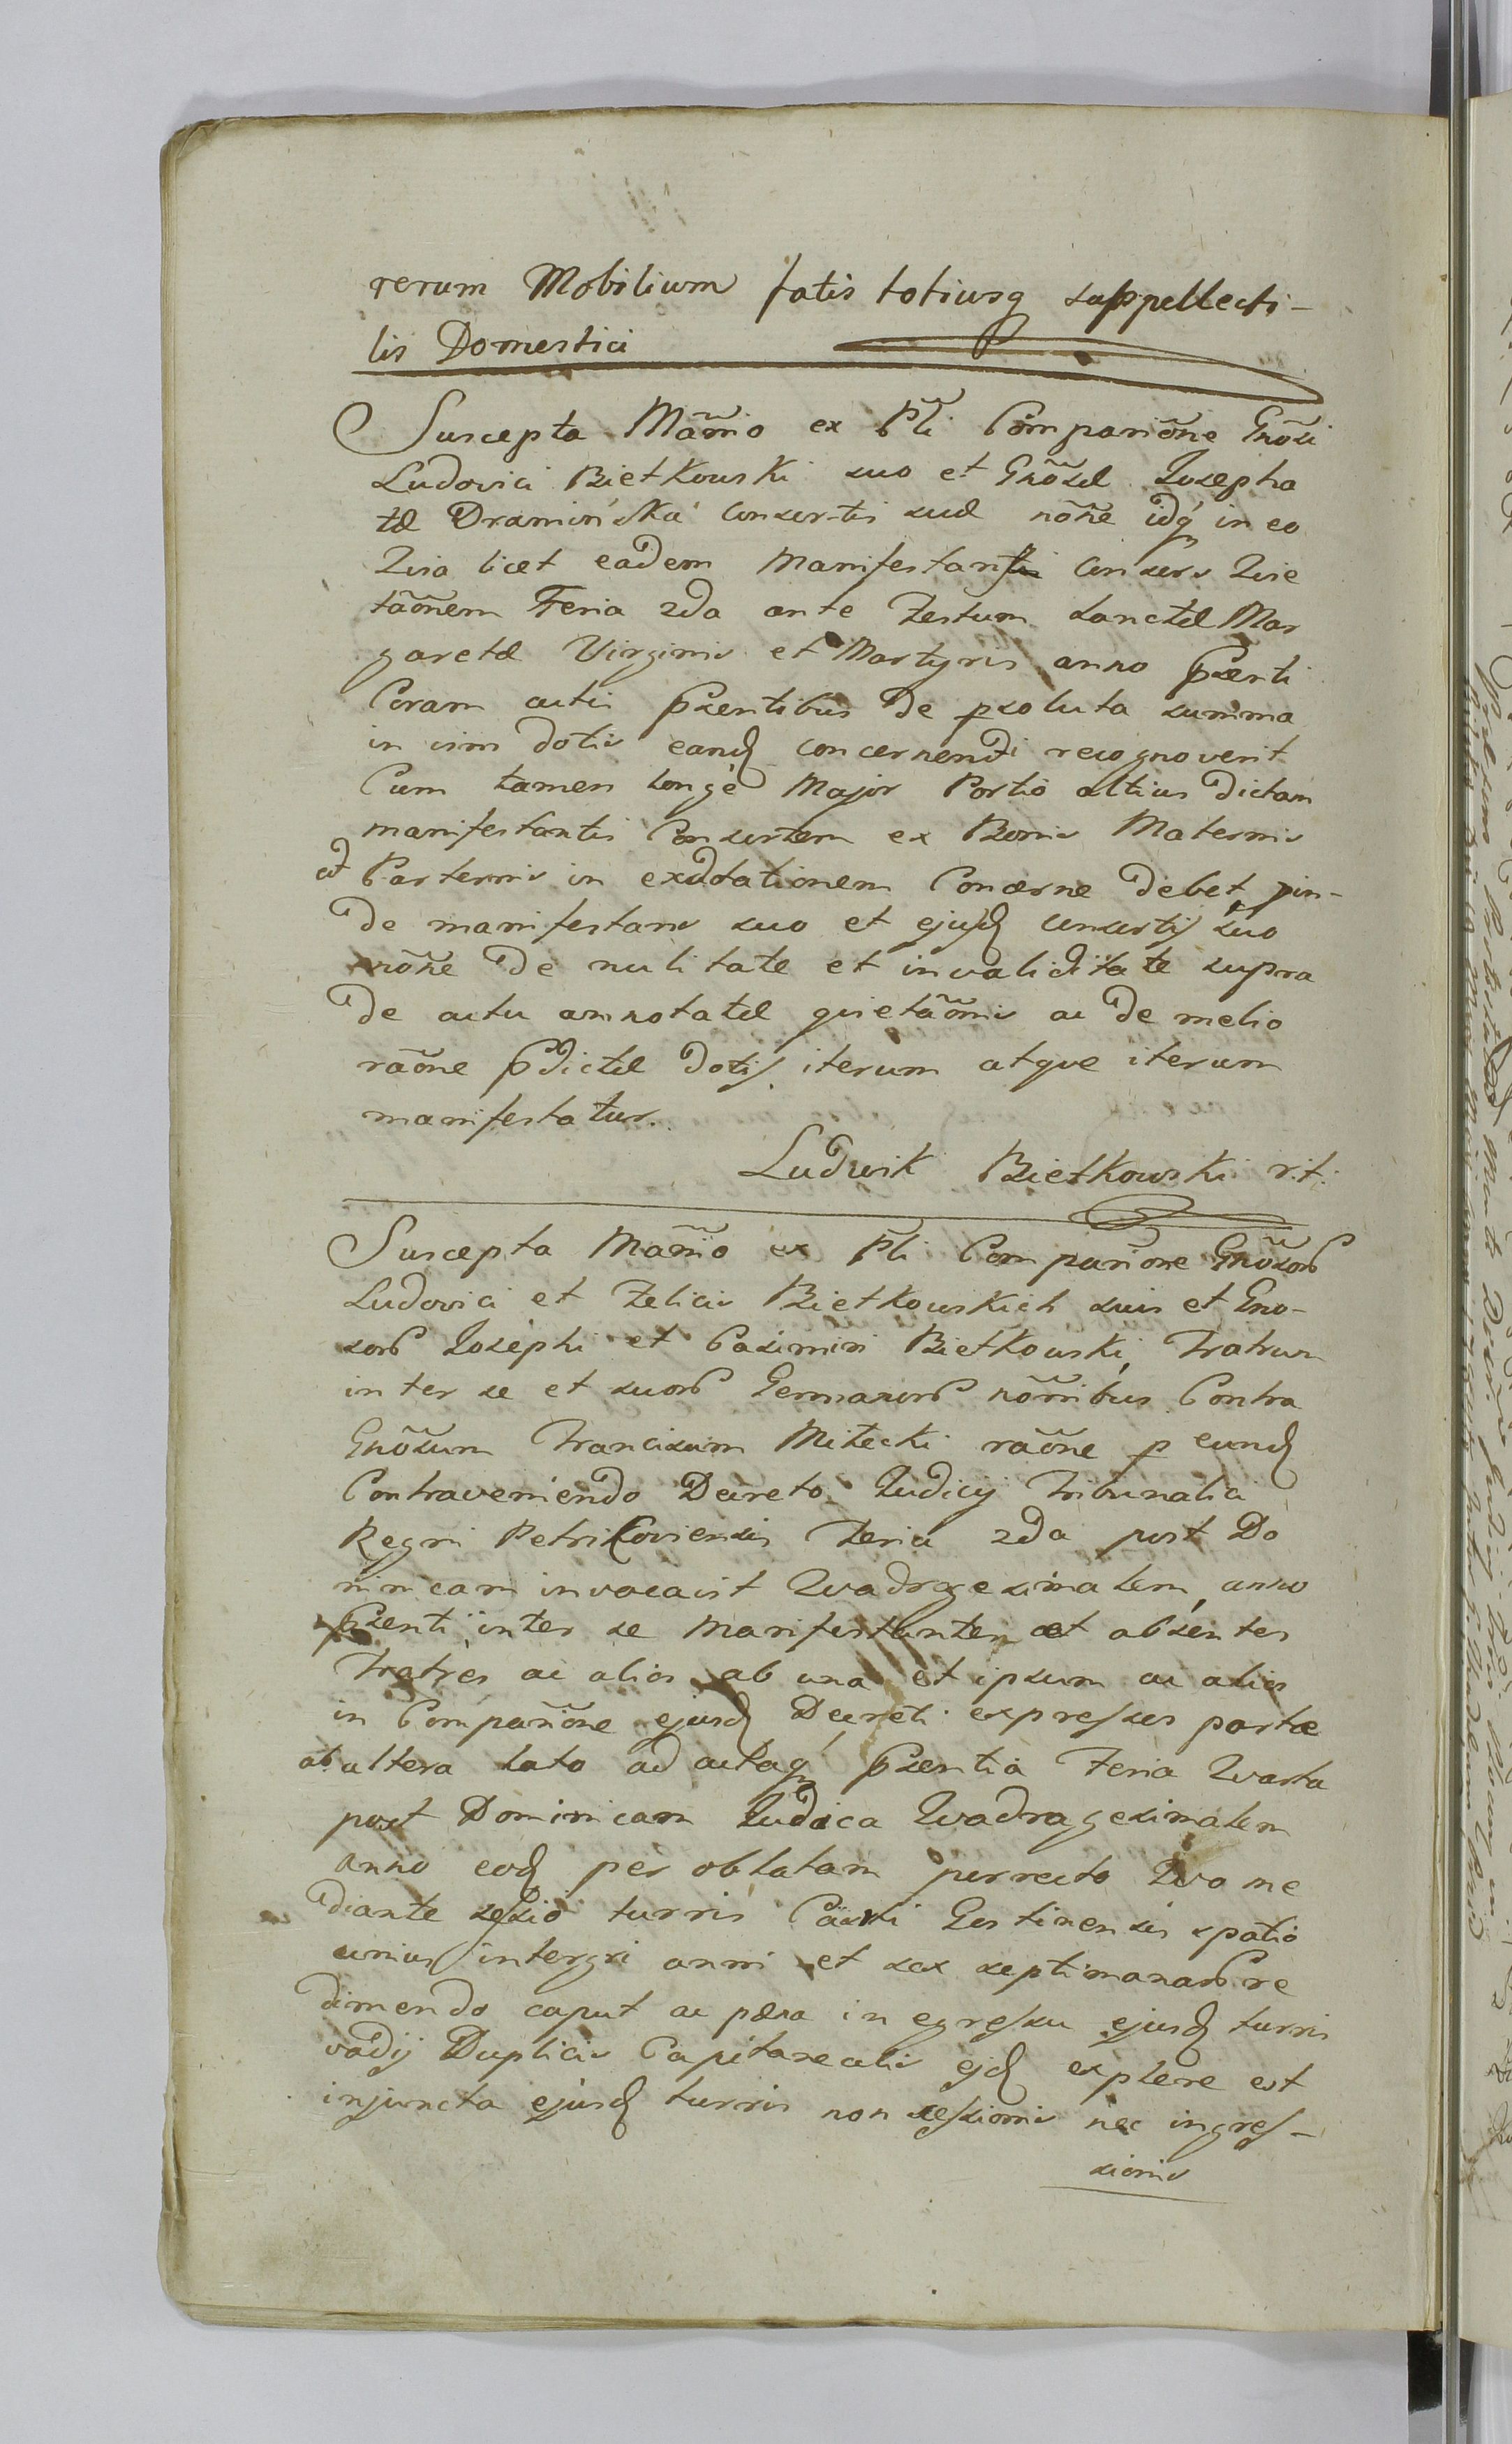 rerum Mobilium satis totiusq suppellecti-
lis Domestici
Suscepta Mãnio ex Pli Compariõne Gnõsi
Ludovici Bietkowski suo et Gnõsæ Josepha
tæ Dramińska Consortis suæ nõne idq in eo
Qvia licet eadem Manifestantis Consors Qvie
tãonem Feria 2da ante Festum Sanctæ Mar
garetæ Virginis et Martyris anno præsenti
Coram actis præsentibus de persoluta summa
in vim dotis eand concernendi recognoverit
Cum tamen longè Major Portio altius dictam
manifestantis Consortem ex Bonis Maternis
et Parternis in exdotationem Concerne debet, pin-
de manifestans suo et ejusd consortis suo
nõne de nulitate et invaliditate supra
de actu annotatæ quietãonis ac de melio
rãone pdictæ dotis iterum atque iterum
manifestatur.
Ludwik Bietkowski r.t.
Suscepta Mãnio ex Pli Compariõne Gnõsor
Ludovici et Felicis Bietkowskich suis et Gno-
sor Josephi et Casimiri Bietkowski, Fratrum
inter se et suor Germanor nõnibus Contra
Gnõsum Franciscum Mitecki rãone p eund
Contraveniendo Decreto Judicij Tribunalis
Regni Petricoviensis Feria 2da post Do
minicam invocavit Qvadragesimalem, anno
præsenti inter se Manifestantem et absentes
Fratres ac alios ab una et ipsum ac alios
in Compariõne ejusd Decreti expressos parte
ab altera lato ad actaq præsentia Feria Qvarta
post Dominicam Judica Qvadragesimalem
anno eod per oblatam porrecto Qvo me
diante sessio turris Castri Gostinensis spatio
unius intergri anni et sex septimanar re
dimendo caput ac pæna in egressu ejusd turris
vadij Duplicis Capitanealis ejd explere est
injuncta ejusd turris non sessionis nec ingres-
sionis